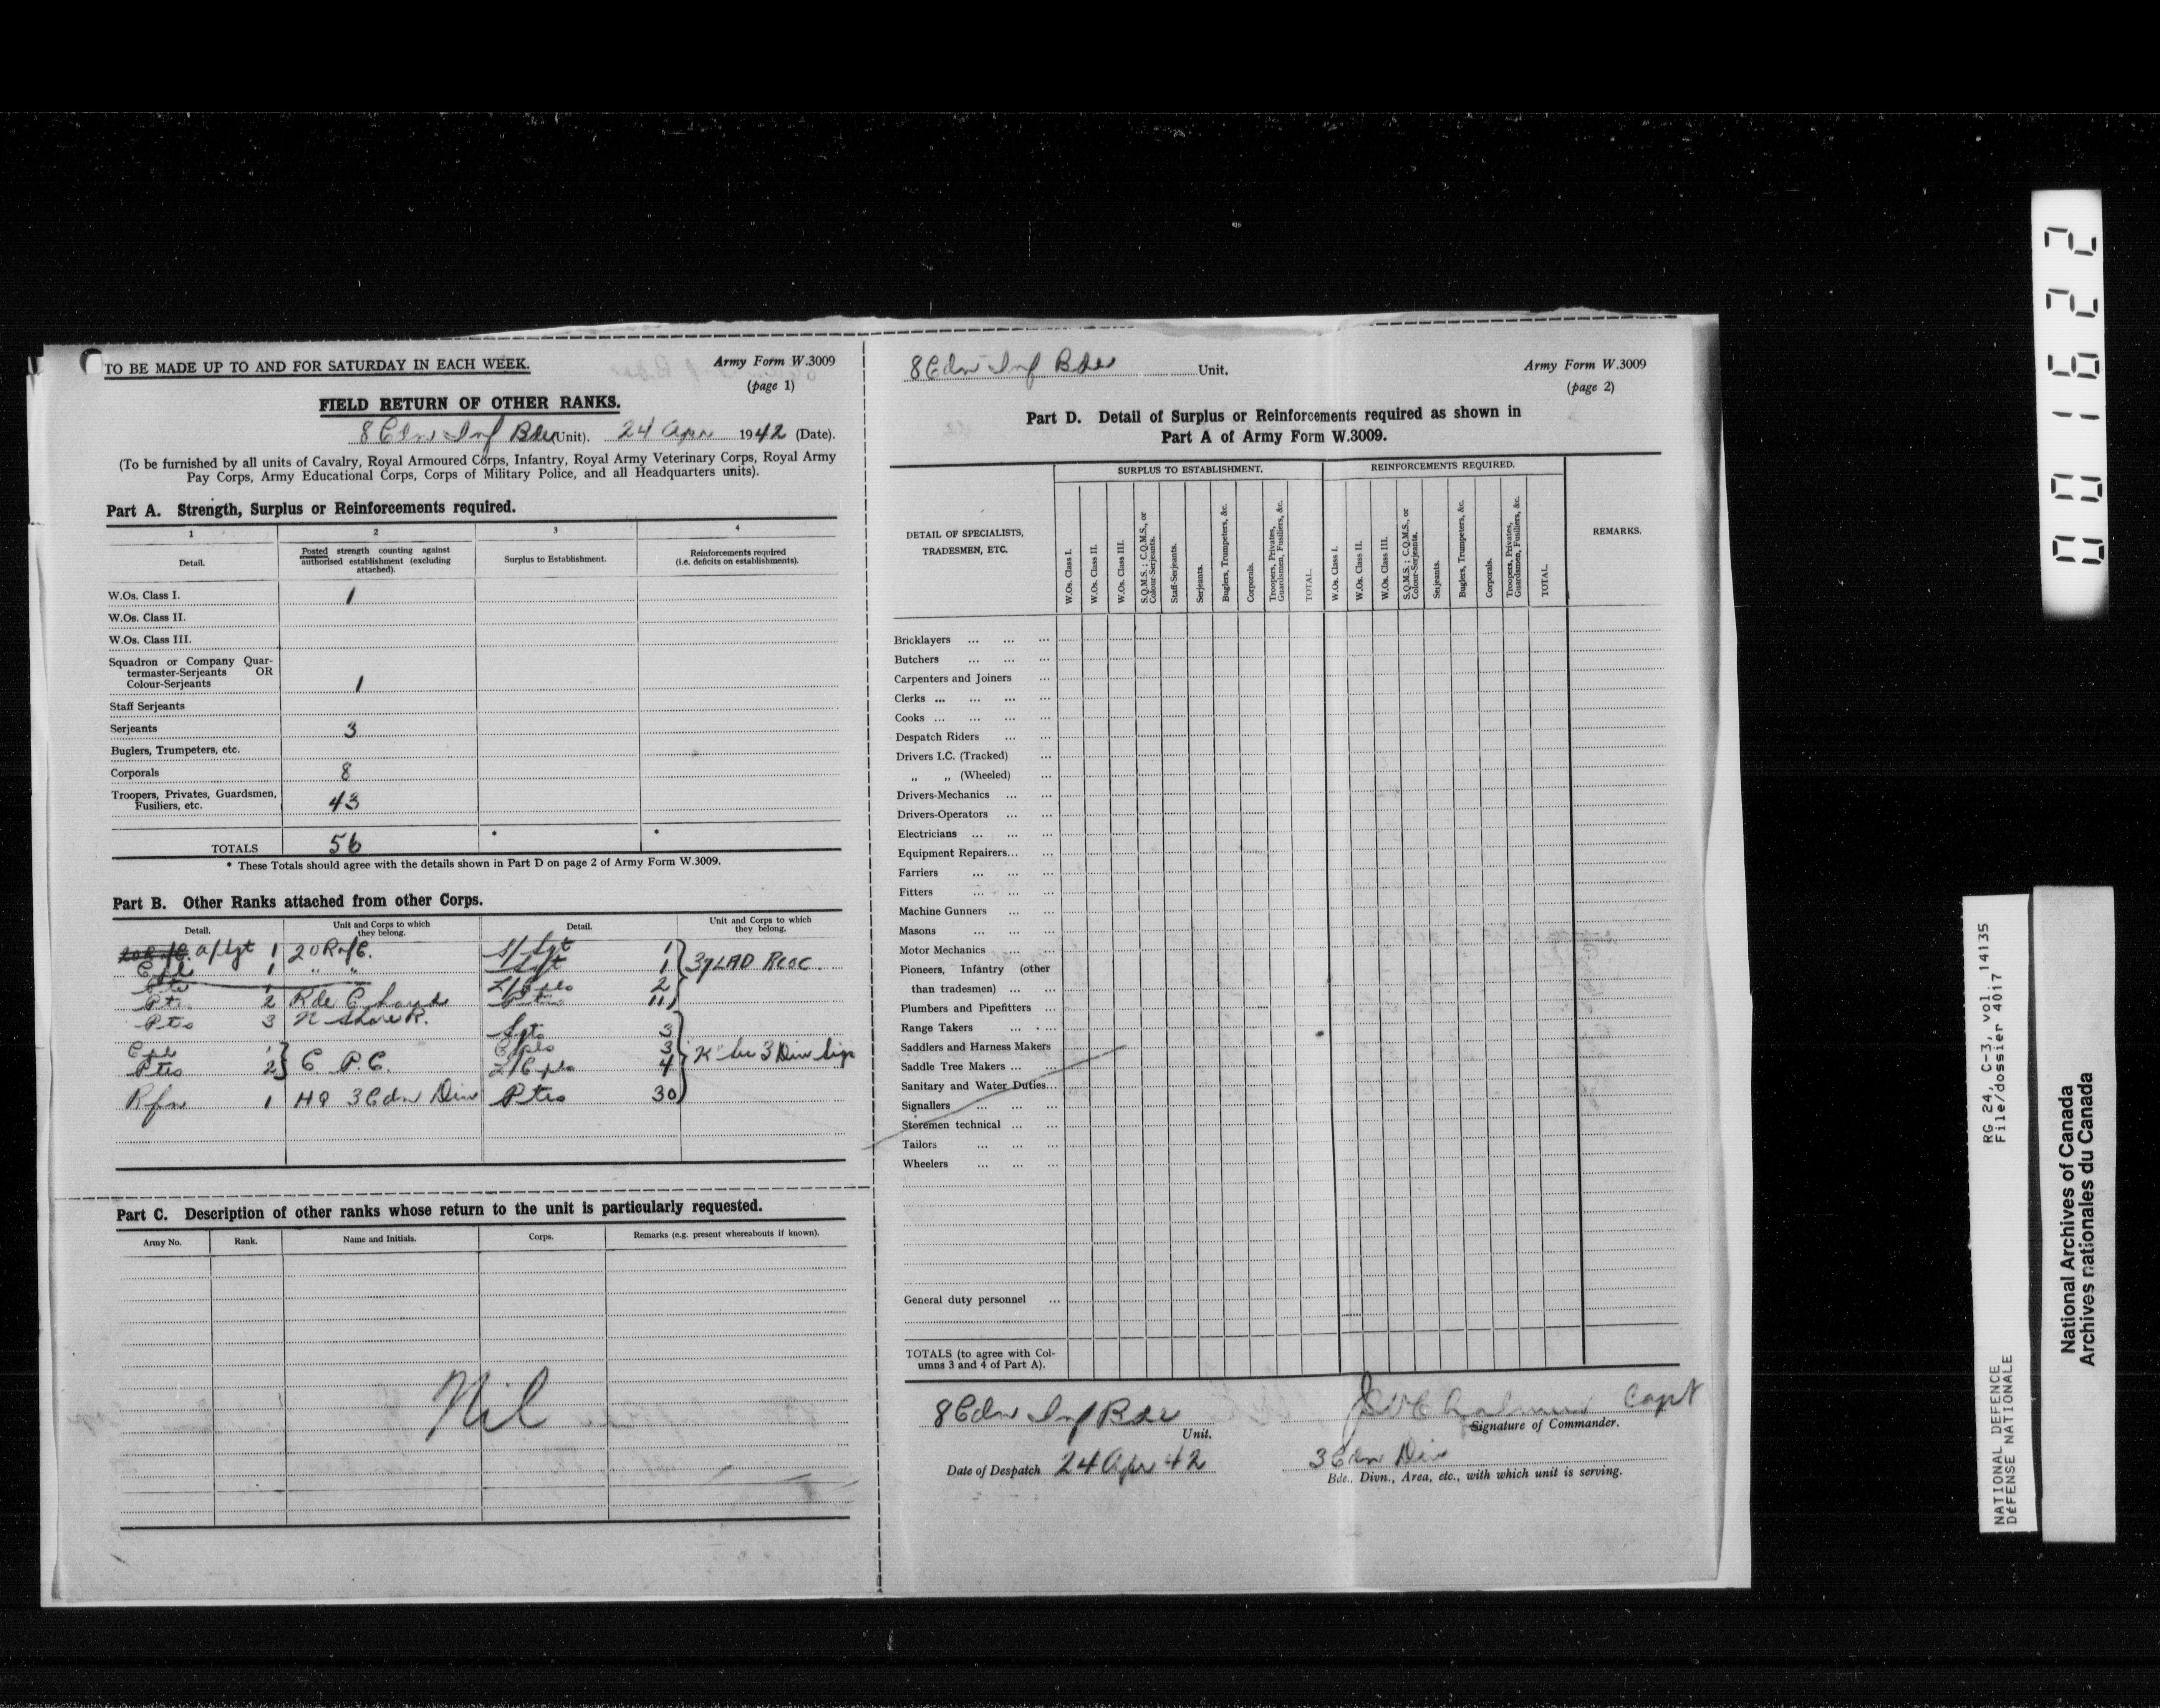 TO BE MADE UP TO AND FOR SATURDAY IN EACH WEEK.
Army Form W.3009
(page 1)
FIELD RETURN OF OTHER RANKS.
8 Cdn Inf Bde (Unit). 24 Apr 1942 (Date).
(To be furnished by all units of Cavalry, Royal Armoured Corps, Infantry, Royal Army Veterinary Corps, Royal Army
Pay Corps, Army Educational Corps, Corps of Military Police, and all Headquarters units).
Part A. Strength, Surplus or Reinforcements required.
1 2 3 4
Detail.
Posted strength counting against
authorised establishment (excluding
attached).
Surplus to Establishment.
Reinforcements required
(i.e. deficits on establishments).
W.Os. Class I. 1
W.Os. Class II.
W.Os. Class III.
Squadron or Company Quar-
termaster-Serjeants OR
Colour-Serjeants 1
Staff Serjeants
Serjeants 3
Buglers, Trumpeters, etc.
Corporals 8
Troopers, Privates, Guardsmen,
Fusiliers, etc. 43
TOTALS 56 * *
* These Totals should agree with the details shown in Part D on page 2 of Army Form W.3009.
Part B. Other Ranks attached from other Corps.
Detail.
Unit and Corps to which
they belong.
Detail.
Unit and Corps to which
they belong.
a/Sgt 1
Cpl 1 " "
Pts 2 R de Chaud
Pts 3 N Shore R.
Cpl 1
Ptes 2 } C P.C.
Rfn 1 HQ 3 Cdn Div
S/Sgt 1
Sgt 1
L/Cpls 2
Pts 11 } 37 LAD RCOC
Sgts 3
Cpls 3
L/Cpls 4
Ptes 30 } 3 Div Sigs
Part C. Description of other ranks whose return to the unit is particularly requested.
Army No. Rank. Name and Initials. Corps. Remarks (e.g. present whereabouts if known).
Nil
8 Cdn Inf Bde Unit.
Army Form W.3009
(page 2)
Part D. Detail of Surplus or Reinforcements required as shown in
Part A of Army Form W.3009.
DETAIL OF SPECIALISTS,
TRADESMEN, ETC.
SURPLUS TO ESTABLISHMENT.
W.Os. Class I.
W.Os. Class II.
W.Os. Class III.
S.Q.M.S.; C.Q.M.S., or
Colour-Serjeants.
Staff-Serjeants.
Serjeants.
Buglers, Trumpeters, &c.
Corporals.
Troopers, Privates,
Guardsmen, Fusiliers, &c.
TOTAL.
REINFORCEMENTS REQUIRED.
W.Os. Class I.
W.Os. Class II.
W.Os. Class III.
S.Q.M.S.; C.Q.M.S., or
Colour-Serjeants.
Serjeants.
Buglers, Trumpeters, &c.
Corporals.
Troopers, Privates,
Guardsmen, Fusiliers, &c.
TOTAL.
REMARKS.
Bricklayers ... ... ...
Butchers ... ... ...
Carpenters and Joiners ...
Clerks ... ... ... ...
Cooks ... ... ... ...
Despatch Riders ... ...
Drivers I.C. (Tracked) ...
„ „ (Wheeled) ...
Drivers-Mechanics ... ...
Drivers-Operators ... ...
Electricians ... ... ...
Equipment Repairers... ...
Farriers ... ... ...
Fitters ... ... ...
Machine Gunners ... ...
Masons ... ... ...
Motor Mechanics ... ...
Pioneers, Infantry (other
than tradesmen) ... ...
Plumbers and Pipefitters ...
Range Takers ... ...
Saddlers and Harness Makers
Saddle Tree Makers ... ...
Sanitary and Water Duties...
Signallers ... ... ...
Storemen technical ... ...
Tailors ... ... ...
Wheelers ... ... ...
General duty personnel ...
TOTALS (to agree with Col-
umns 3 and 4 of Part A).
8 Cdn Inf Bde
Unit.
Capt
Signature of Commander.
Date of Despatch 24 Apr 42
3 Cdn Div
Bde., Divn., Area, etc., with which unit is serving.
001622
NATIONAL DEFENCE
DÉFENSE NATIONALE
RG 24, C-3, vol. 14135
File/dossier 4017
National Archives of Canada
Archives nationales du Canada